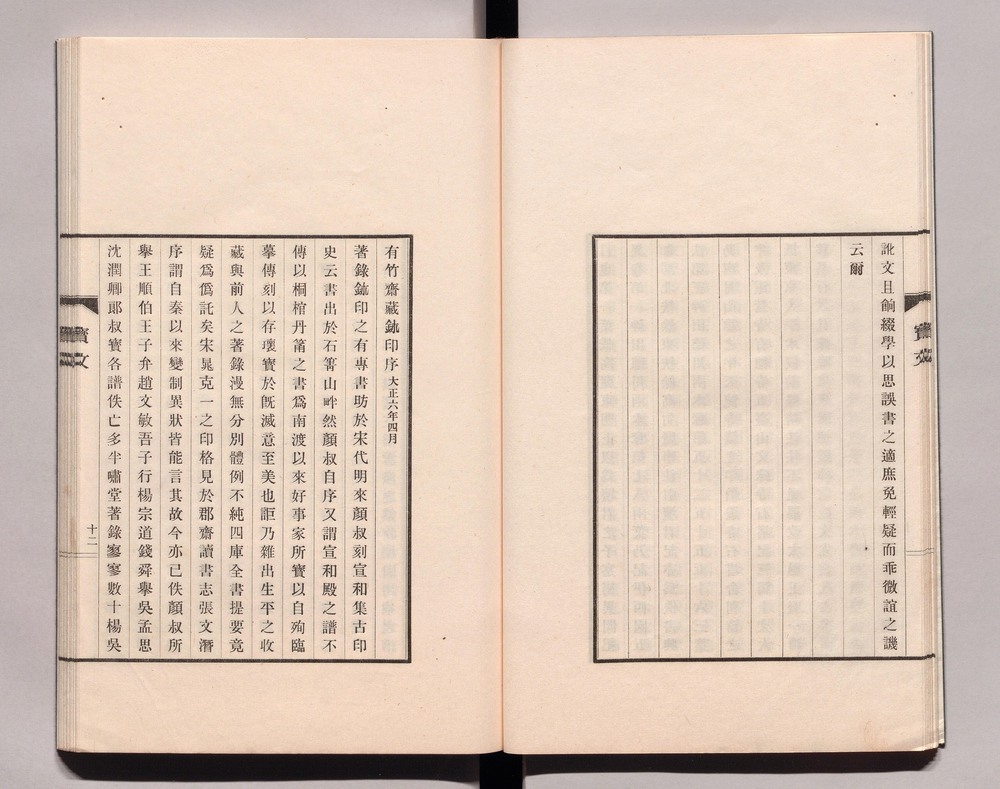 訛文且餉綴學以思誤書之適庶免輕疑而乖微誼之譏
云爾
有竹齋藏鉨印序 大正六年四月
著錄鉨印之有專書昉於宋代明來顏叔刻宣和集古印
史云書出於石箐山畔然顏叔自序又謂宣和殿之譜不
傳以桐棺丹篇之書爲南渡以來好事家所寶以自殉臨
摹傳刻以存瓌寶於旣滅意至美也詎乃雜出生平之收
藏與前人之著錄漫無分別體例不純四庫全書提要竟
疑爲僞託矣宋晁克一之印格見於郡齋讀書志張文潛
序謂自秦以來變制異狀皆能言其故今亦已佚顏叔所
擧王順伯王子弁趙文敏吾子行楊宗道錢舜擧吳孟思
沈潤卿郞叔寶各譜佚亡多半嘯堂著錄寥寥數十楊吳
十二